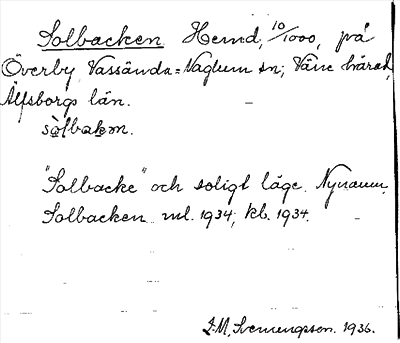 Solbacken Hemd, 10/1000, på
Överby, Vassända-Naglum sn; Väne härad,
Älfsborgs län.
sòlbakɐn.
"Solbacke" och soligt läge. Nynamn.
Solbacken ml. 1934; kb. 1934.
J.M. Svennungsson. 1936.